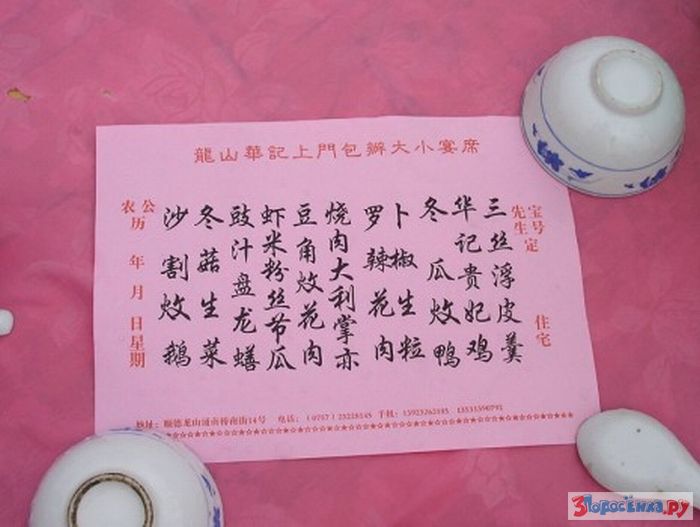 龍山華記上門包辦大小宴席
宝号定
先生
住宅
三丝浮皮羹
华记贵妃鸡
冬瓜炆鸭
卜椒生粒
罗辣花肉
烧肉大利掌亦
豆角炆花肉
虾米粉丝节瓜
豉汁盘龙鳝
冬菇生菜
沙割炆鹅
公
农历 年 月 日星期
地址：顺德龙山 桥南街14号 电话：(0757) 手机：
Поросёнка.ру